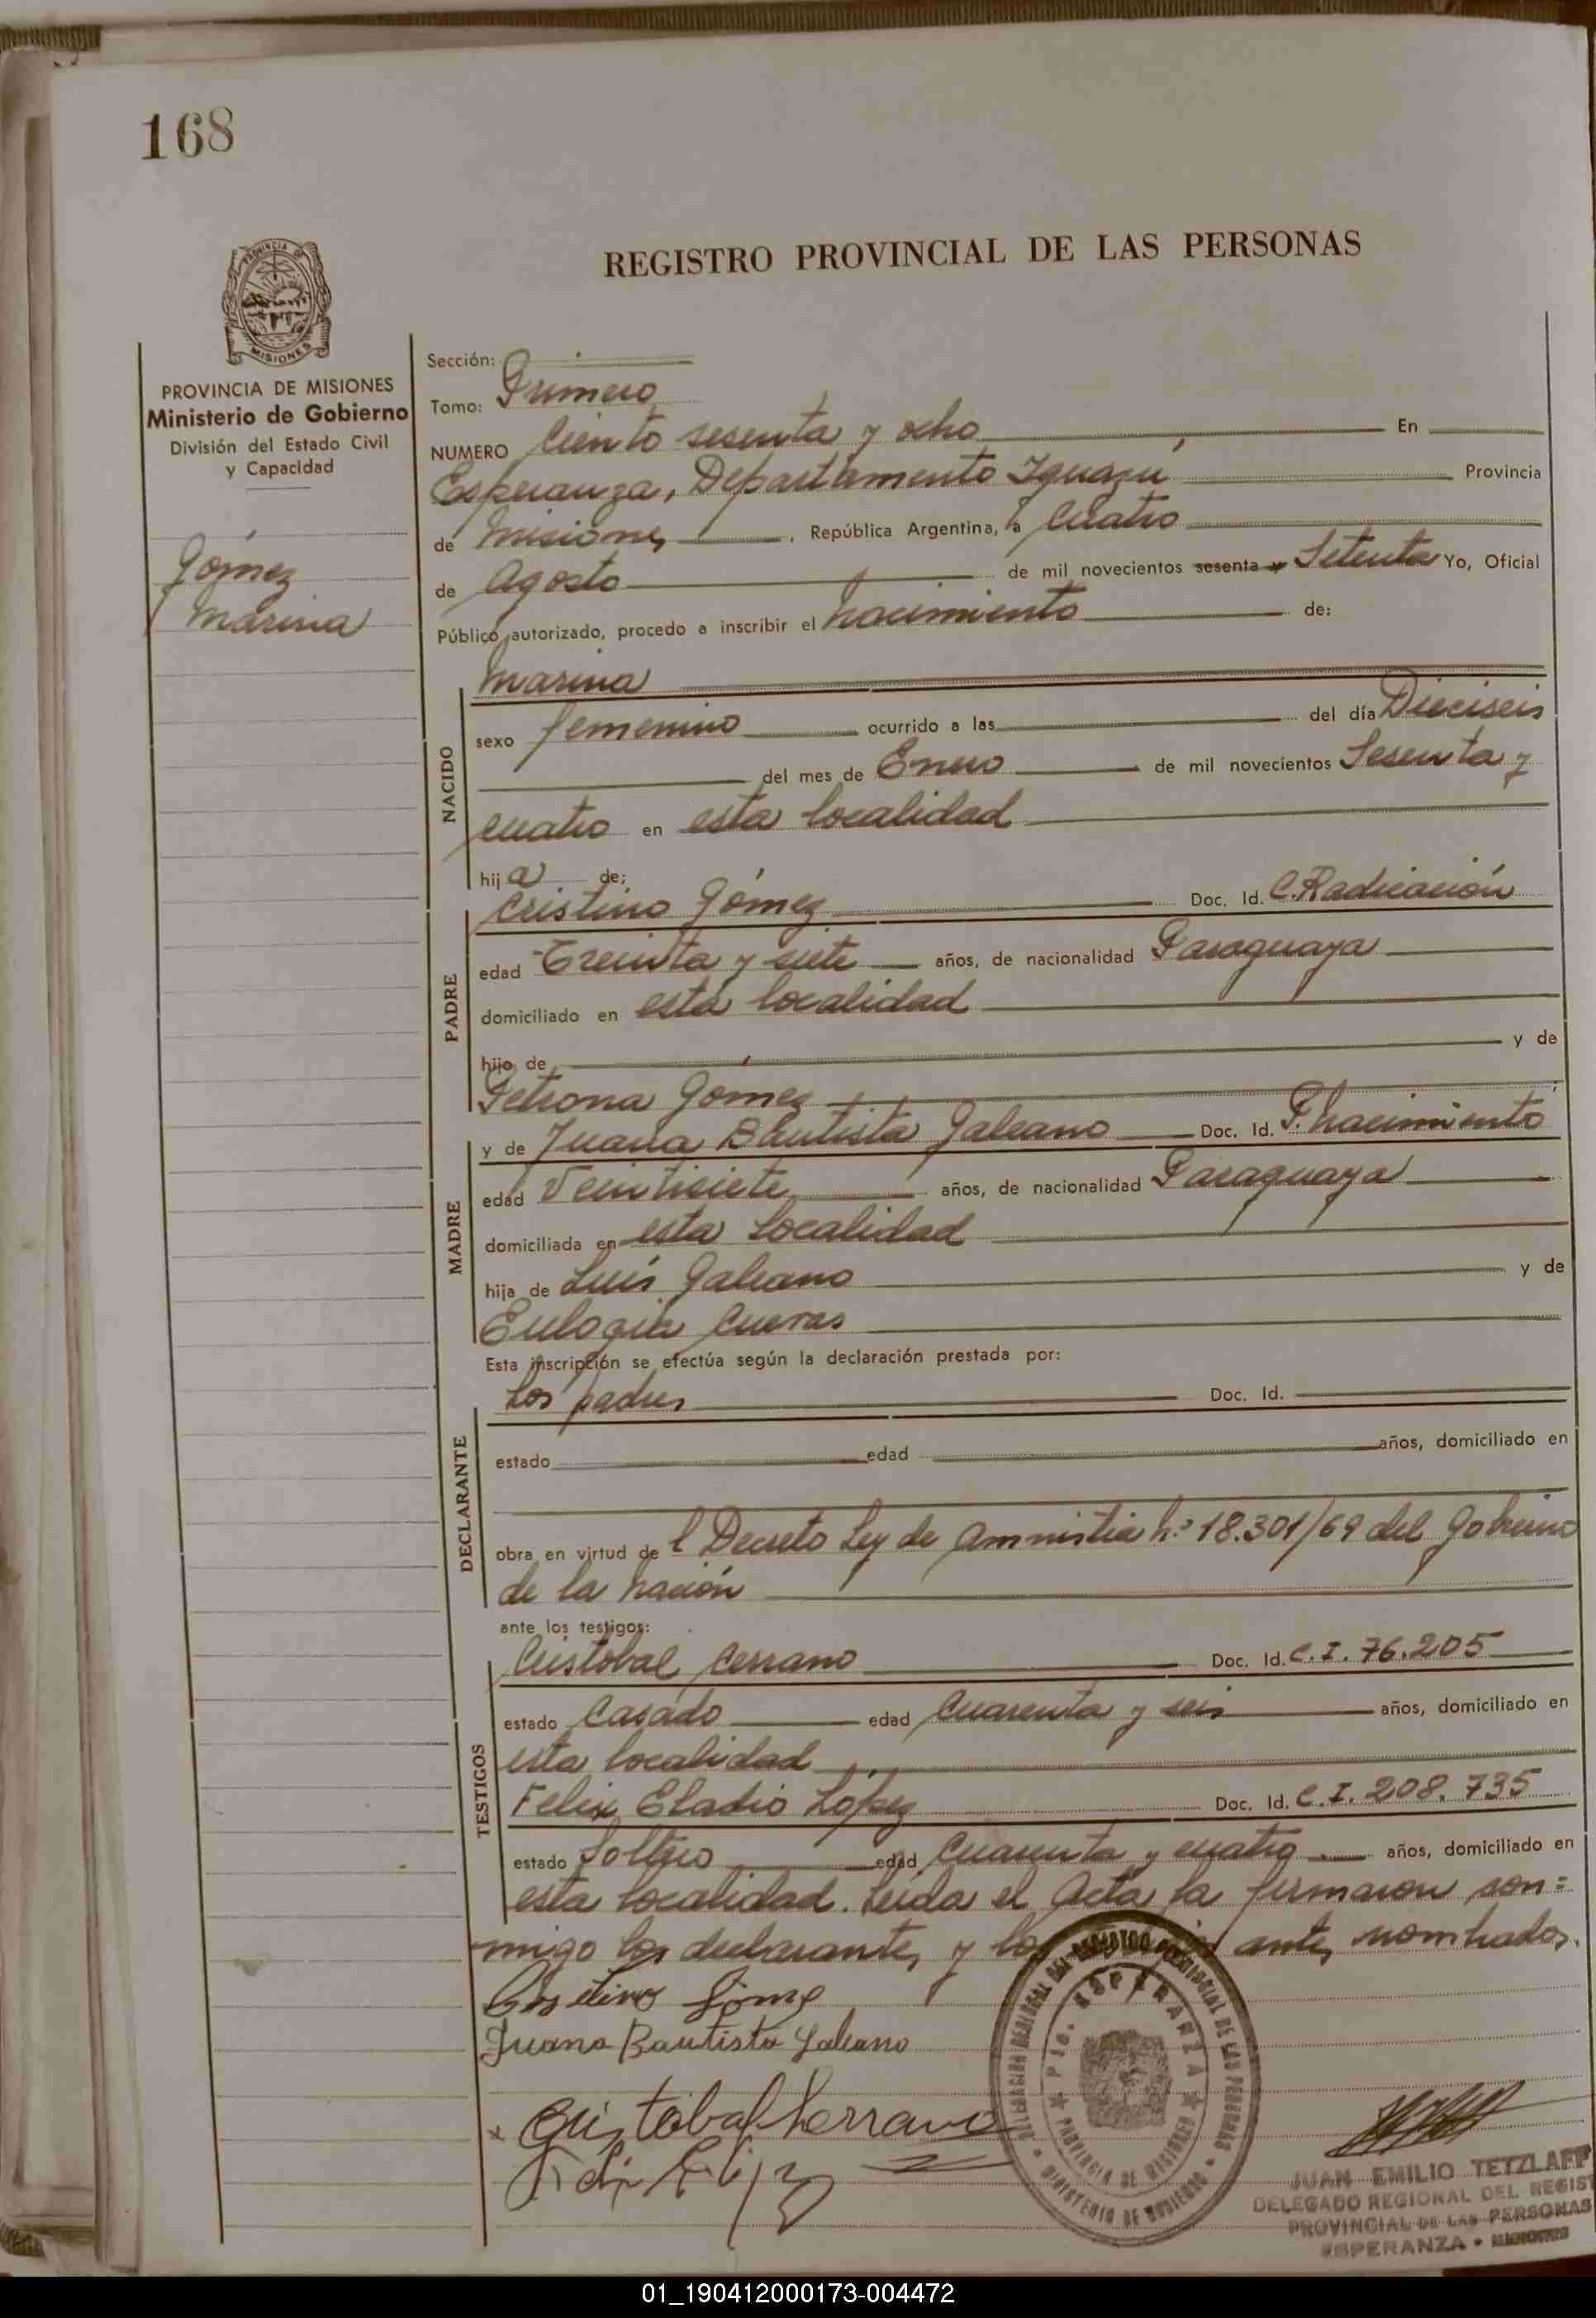 168
REGISTRO PROVINCIAL DE LAS PERSONAS
PROVINCIA DE MISIONES
Ministerio de Gobierno
División del Estado Civil
y Capacidad
Gómez
Marina
Sección:
Tomo: Primero
NUMERO Ciento sesenta y ocho En
Esperanza, Departamento Iguazú Provincia
de Misiones, República Argentina, a Cuatro
de Agosto de mil novecientos sesenta y Setenta Yo, Oficial
Público autorizado, procedo a inscribir el nacimiento de:
NACIDO
Marina
sexo femenino ocurrido a las del día Dieciseis
del mes de Enero de mil novecientos Sesenta y
cuatro en esta localidad
hija de:
PADRE
Cristino Gómez Doc. Id. C. Radicación
edad Treinta y siete años, de nacionalidad Paraguaya
domiciliado en esta localidad
hijo de y de
Petrona Gómez
MADRE
y de Juana Bautista Galeano Doc. Id. P. nacimiento
edad Veintisiete años, de nacionalidad Paraguaya
domiciliada en esta localidad
hija de Luis Galeano y de
Eulogia Cuevas
Esta inscripción se efectúa según la declaración prestada por:
DECLARANTE
Los padres Doc. Id.
estado edad años, domiciliado en
obra en virtud de l Decreto Ley de Amnistia N.º 18.301/69 del Gobierno
de la Nación
ante los testigos:
TESTIGOS
Cristobal Cerrano Doc. Id. C.I. 76.205
estado Casado edad Cuarenta y seis años, domiciliado en
esta localidad
Felix Eladio López Doc. Id. C.I. 208.735
estado Soltero edad Cuarenta y cuatro años, domiciliado en
esta localidad. Leída el Acta la firmaron con=
migo los declarantes y los ante, nombrados.
Cristino Gomez
Juana Bautista Galeano
Cristobal Serrano
DELEGACION REGIONAL DEL REGISTRO PROVINCIAL DE LAS PERSONAS
MINISTERIO DE GOBIERNO
Pto. ESPERANZA
PROVINCIA DE MISIONES
JUAN EMILIO TETZLAFF
DELEGADO REGIONAL DEL REGIST
PROVINCIAL DE LAS PERSONAS
ESPERANZA - MISIONES
01_190412000173-004472